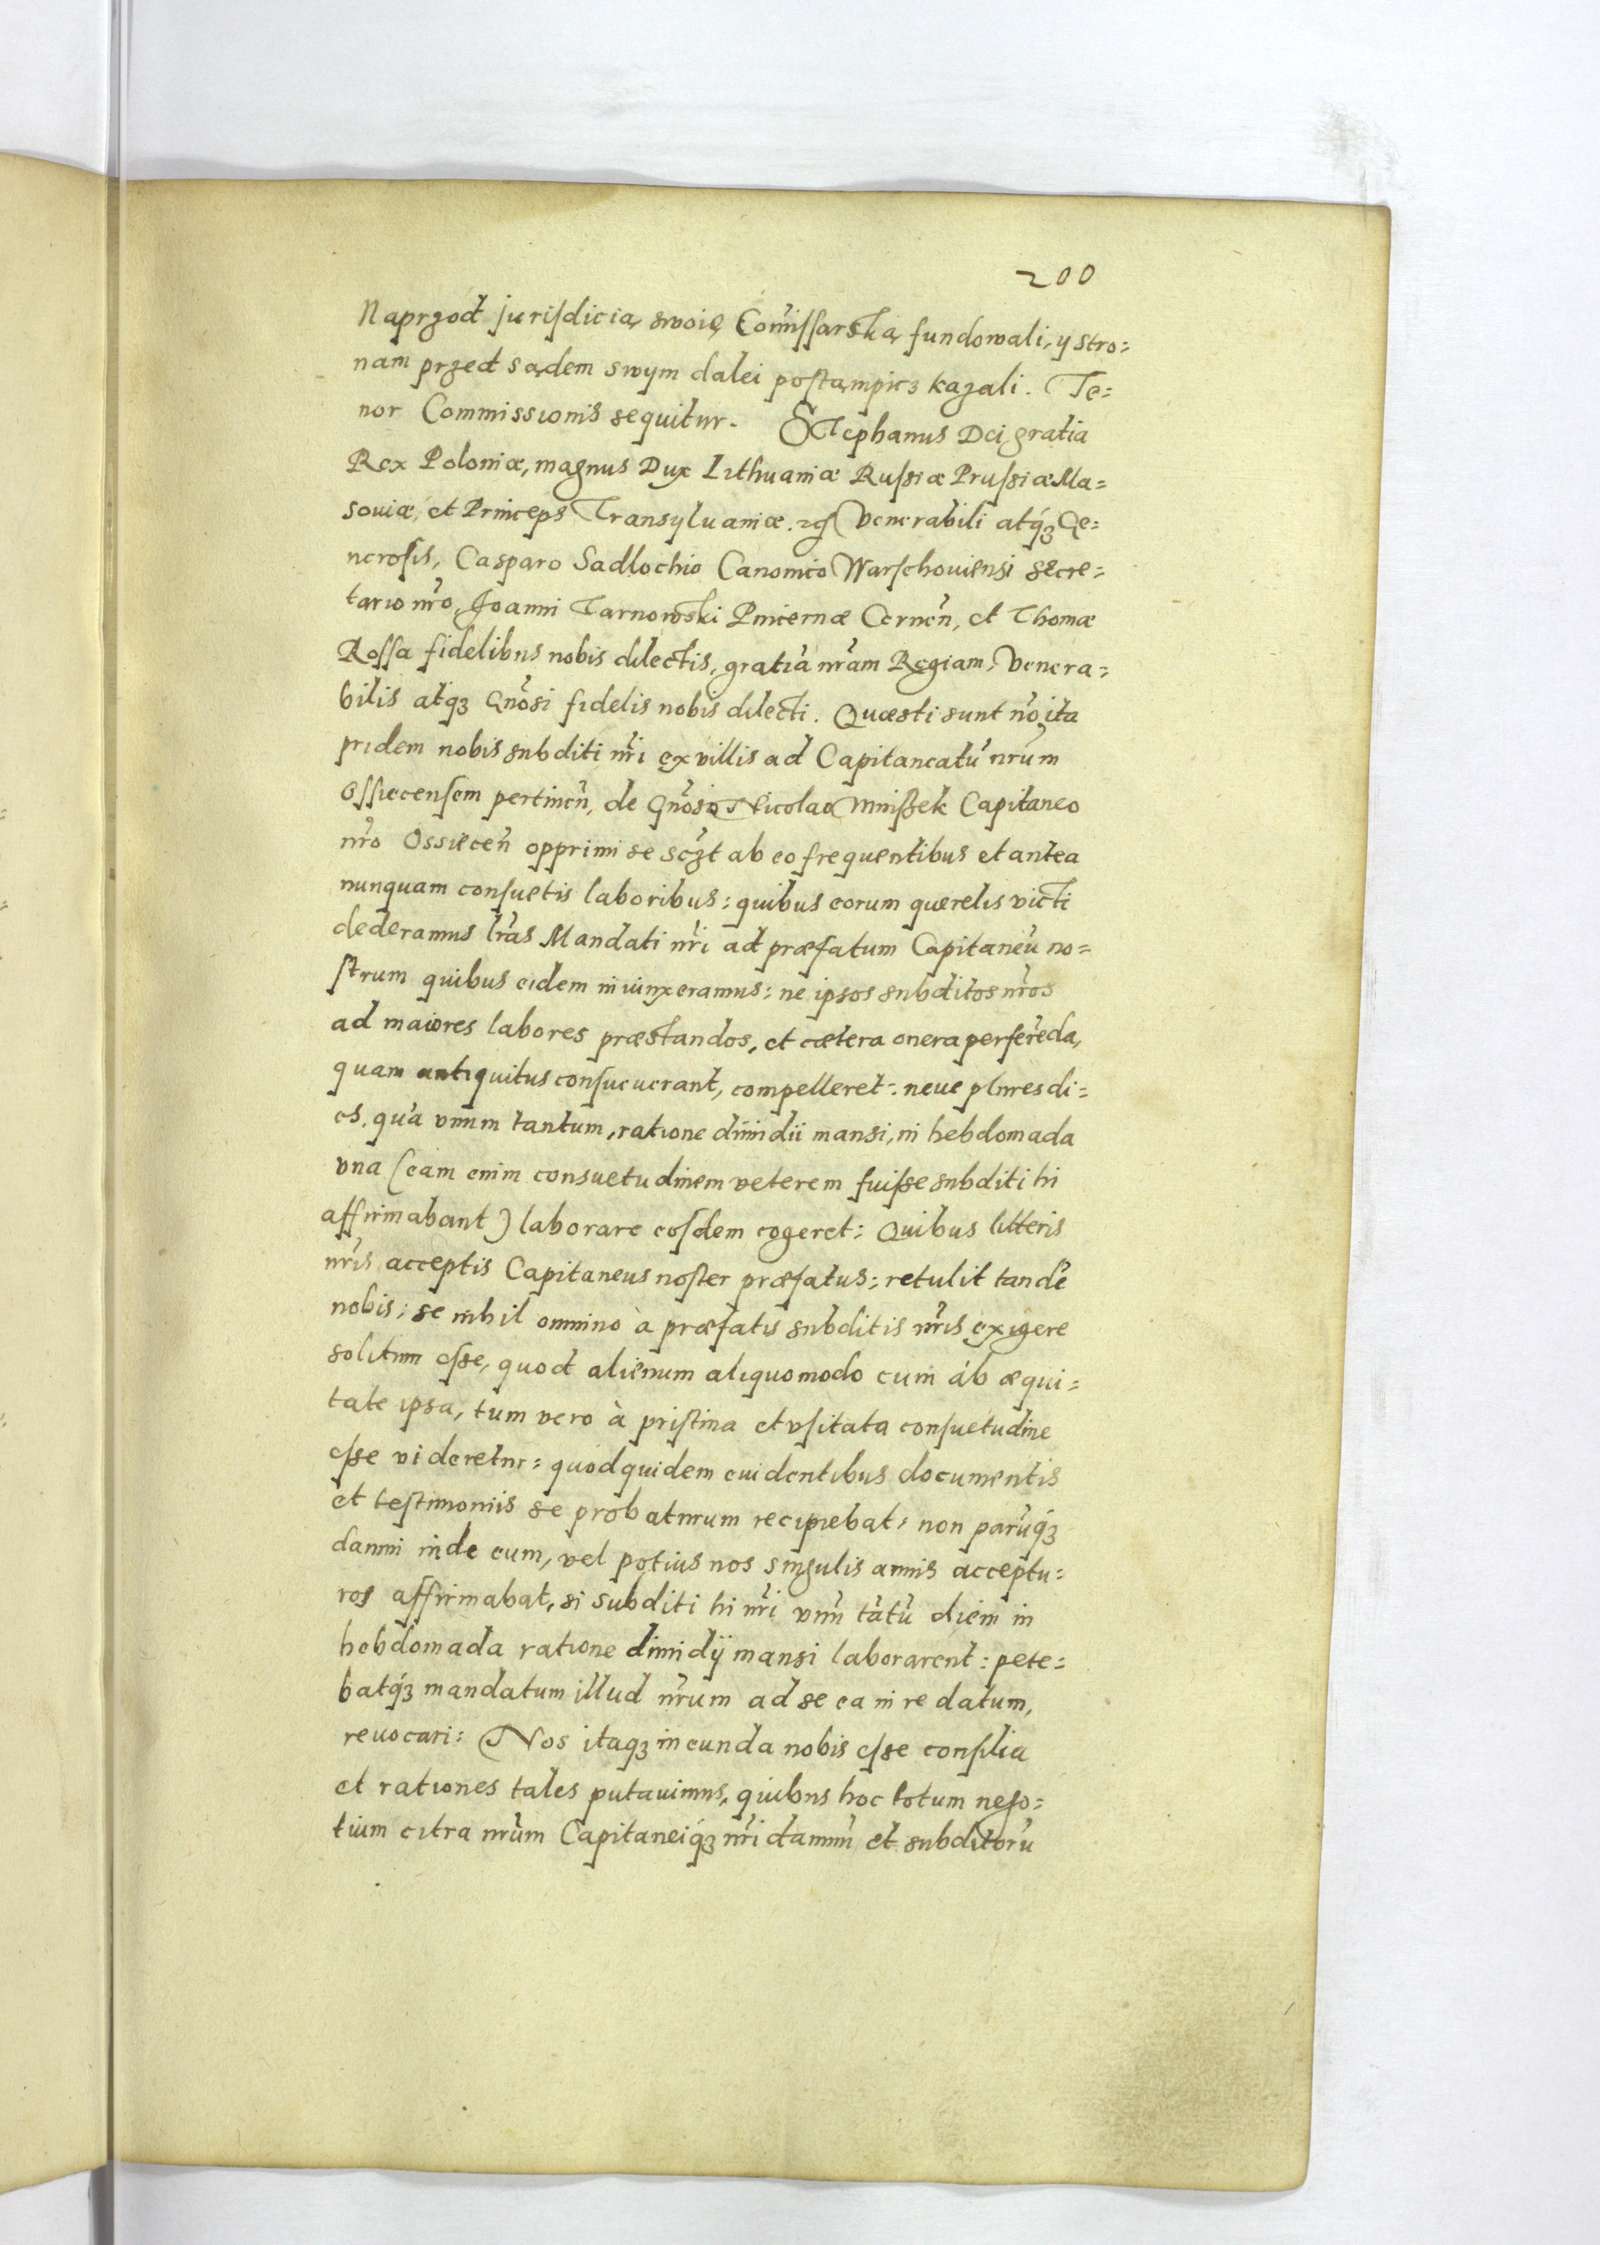 200
Naprzod juriſdicią swoię Com̃iſſarską fundowali, y stro=
nam przed sądem swym dalei poſtąmpicz kazali. Te=
nor Commissionis sequitur. Stephanus Dei gratia
Rex Poloniæ, magnus Dux Lithuaniæ Ruſsiæ Pruſsiæ Ma=
souiæ, et Princeps Transyluaniæ. Venerabili atq́ꝫ Ge=
neroſis, Casparo Sadlochio Canonico Warſchouiensi secre=
tario nr̃o, Joanni Tarnowski Pincernæ Cernen̄, et Thomæ
Roſſa fidelibus nobis dilectis, gratiā nr̃am Regiam, Venera=
bilis atqꝫ Gnõsi fidelis nobis dilecti. Quæsti sunt nõ ita
pridem nobis subditi nr̃i ex villis ad Capitaneatū nr̃um
Oſſiecenſem pertinen̄, de Gnõso Nicolao Mniſzek Capitaneo
nr̃o Ossiecen̄ opprimi se sczt ab eo frequentibus et antea
nunquam conſuetis laboribus: quibus eorum querelis victi
dederamus lr̃as Mandati nr̃i ad præfatum Capitaneū no=
ſtrum quibus eidem iniunxeramus: ne ipsos subditos nr̃os
ad maiores labores præstandos, et cætera onera perferēda,
quam antiquitus conſueuerant, compelleret: neue plures di=
es, quā vnum tantum, ratione dimidii mansi, in hebdomada
vna (eam enim consuetudinem veterem fuiſse subditi hi
affirmabant) laborare eoſdem cogeret: Quibus litteris
nr̃is acceptis Capitaneus noſter præfatus: retulit tandē
nobis: se nihil omnino à præfatis subditis nr̃is exigere
solitum eſse, quod alienum aliquo modo cum ab æqui=
tate ipsa, tum vero à priſtina et vſitata conſuetudine
eſse videretur: quod quidem euidentibus documentis
et teſtimoniis se probaturum recipiebat: non parūq́ꝫ
damni inde eum, vel potius nos singulis annis acceptu=
ros affirmabat, si subditi hi nr̃i vnū tātū diem in
hebdomada ratione dimidij mansi laborarent: pete=
batq́ꝫ mandatum illud nr̃um ad se ea in re datum,
reuocari: Nos itaqꝫ ineunda nobis eſse conſilia
et rationes tales putauimus, quibus hoc totum nego=
tium citra nr̃um Capitaneiq́ꝫ nr̃i damnū et subditorū